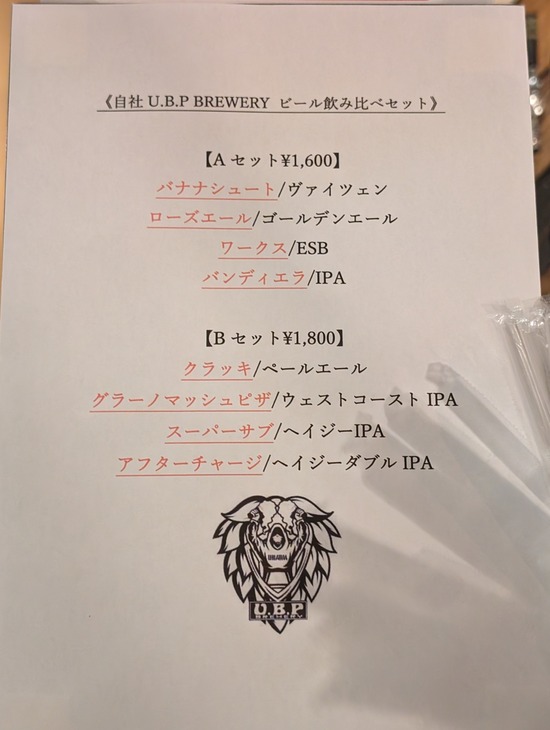 《自社 U.B.P BREWERY ビール飲み比べセット》
【A セット¥1,600】
バナナシュート/ヴァイツェン
ローズエール/ゴールデンエール
ワークス/ESB
バンディエラ/IPA
【B セット¥1,800】
クラッキ/ペールエール
グラーノマッシュピザ/ウェストコースト IPA
スーパーサブ/ヘイジーIPA
アフターチャージ/ヘイジーダブル IPA
U.B.P
BREWERY